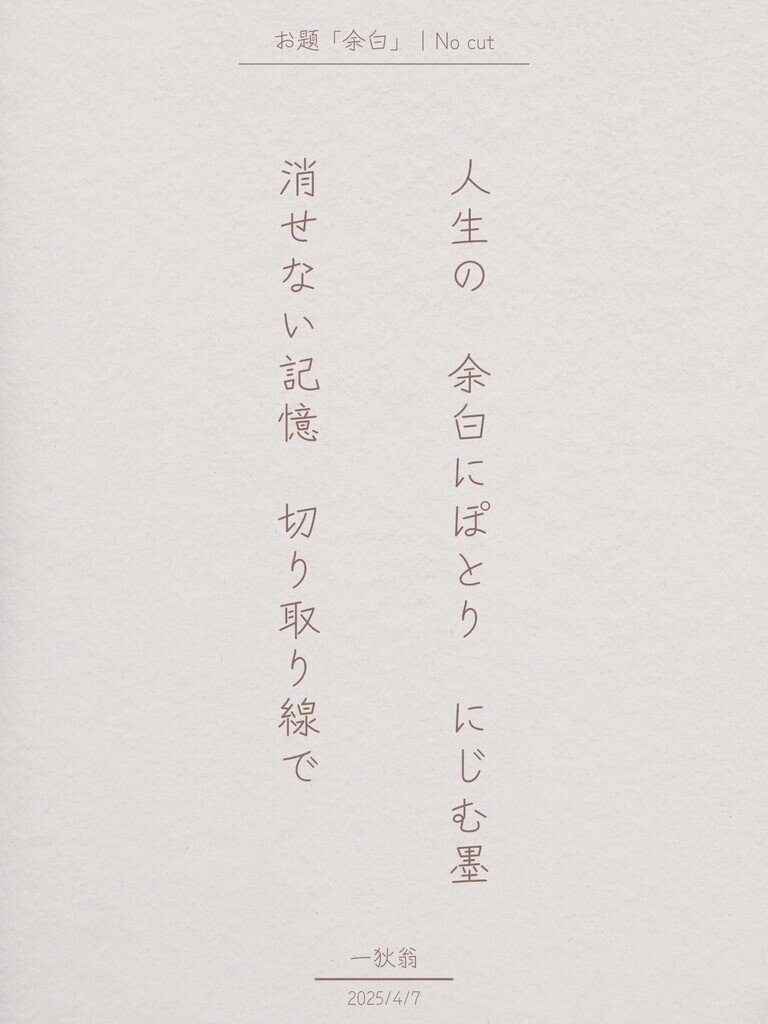 お題「余白」 | No cut
人生の　余白にぽとり　にじむ墨
消せない記憶　切り取り線で
一狄翁
2025/4/7